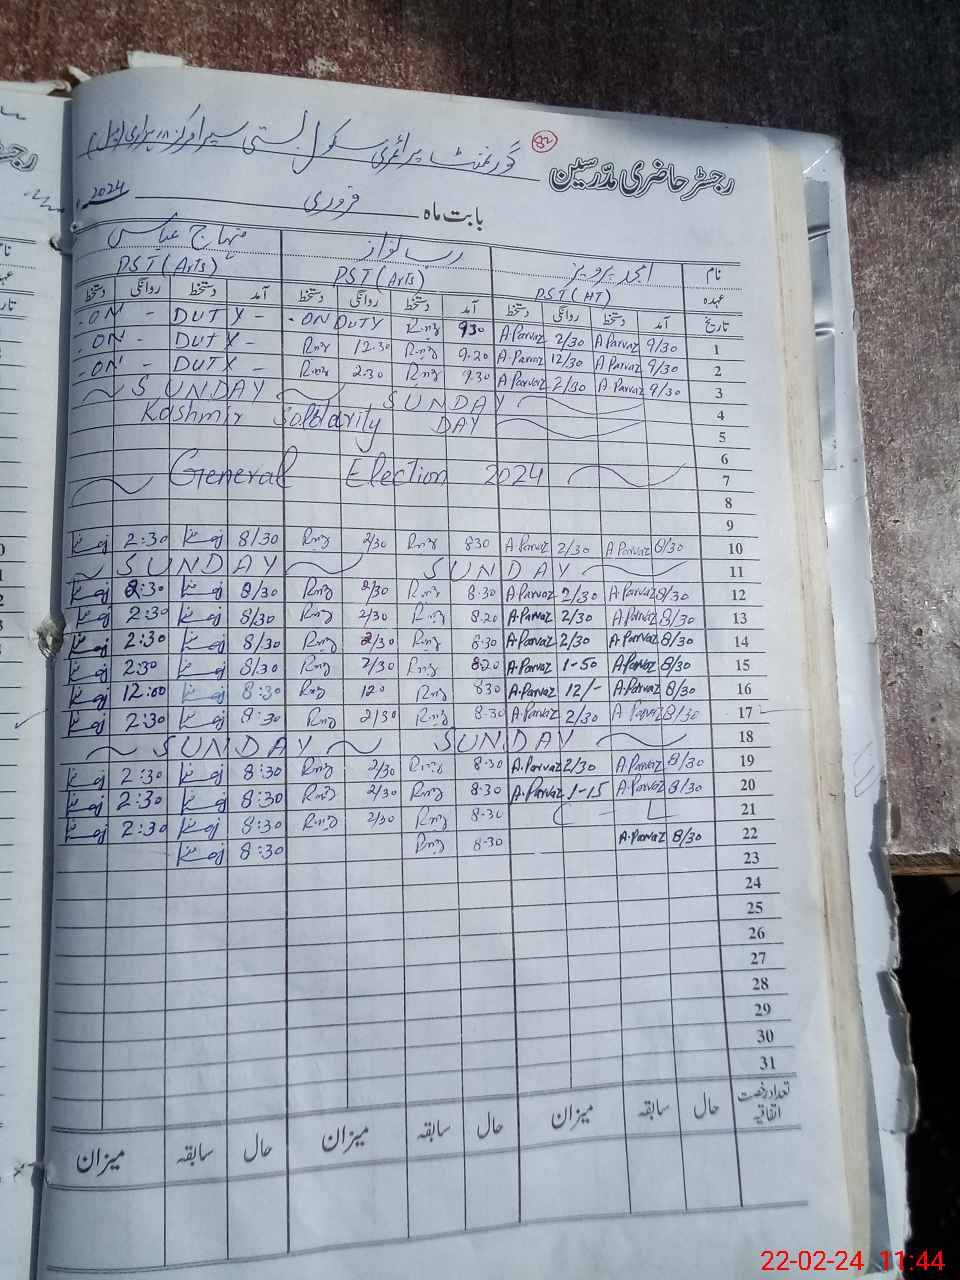 82
رجسٹر حاضری مدرسین گورنمنٹ پرائمری سکول بستی
بابت ماہ فروری 2024
نام امجد پرویز رب نواز منہاج عباس
عہدہ PST (HT) PST (Arts) PST (Arts)
تاریخ آمد دستخط روانگی دستخط آمد دستخط روانگی دستخط آمد دستخط روانگی دستخط
1 9/30 A Parvaz 2/30 A Parvaz 930 Rnz ON DUTY ON - DUTY -
2 9/30 A Parvaz 12/30 A.Parvaz 9.20 Rnz 12.30 Rnz ON - DUTY -
3 9/30 A Parvaz 2/30 A Parvaz 9.30 Rnz 2.30 Rnz ON - DUTY -
4 SUNDAY SUNDAY
5 Kashmir Solidarity DAY
6
7 General Election 2024
8
9
10 8/30 A Parvaz 2/30 A Parvaz 830 Rnz 2/30 Rnz 8/30 2:30
11 SUNDAY SUNDAY
12 8/30 A Parvaz 2/30 A Parvaz 8.30 Rnz 2/30 Rnz 8/30 2:30
13 8/30 A Parvaz 2/30 A.Parvaz 8.20 Rnz 2/30 Rnz 8/30 2:30
14 8/30 A.Parvaz 2/30 A.Parvaz 8.30 Rnz 2/30 Rnz 8/30 2:30
15 8/30 A.Parvaz 1-50 A.Parvaz 8.20 Rnz 2/30 Rnz 8/30 2:30
16 8/30 A.Parvaz 12/- A.Parvaz 830 Rnz 120 Rnz 8:30 12:00
17 8/30 A Parvaz 2/30 A.Parvaz 8.30 Rnz 2/30 Rnz 8:30 2:30
18 SUNDAY SUNDAY
19 8/30 A.Parvaz 2/30 A.Parvaz 8.30 Rnz 2/30 Rnz 8:30 2:30
20 8/30 A.Parvaz 1-15 A.Parvaz 8.30 Rnz 2/30 Rnz 8:30 2:30
21 C - L 8.30 Rnz 2/30 Rnz 8:30 2:30
22 8/30 A.Parvaz 8.30 Rnz 8:30
23
24
25
26
27
28
29
30
31
تعداد رخصت اتفاقیہ حال سابقہ میزان حال سابقہ میزان حال سابقہ میزان
22-02-24 11:44